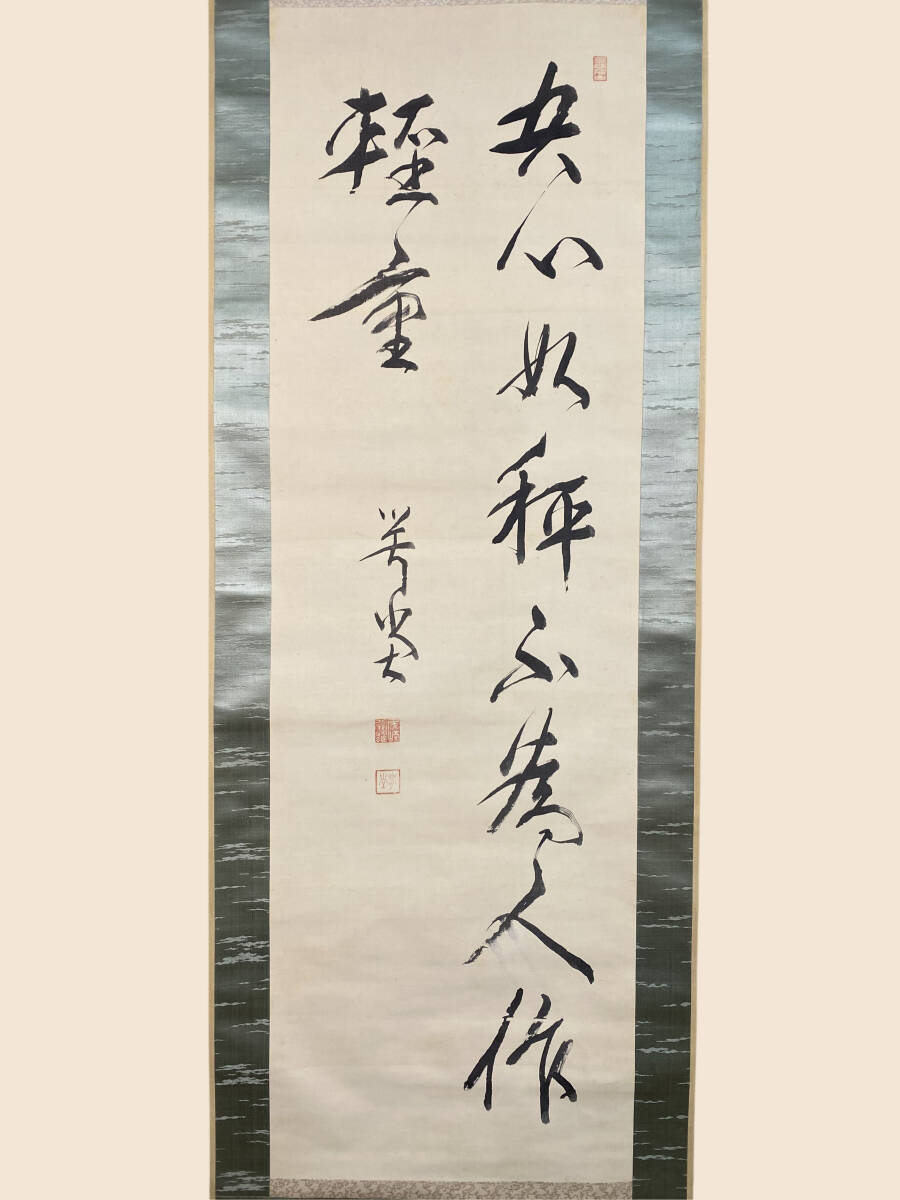 吾心如秤不為人作
輕重
咢堂